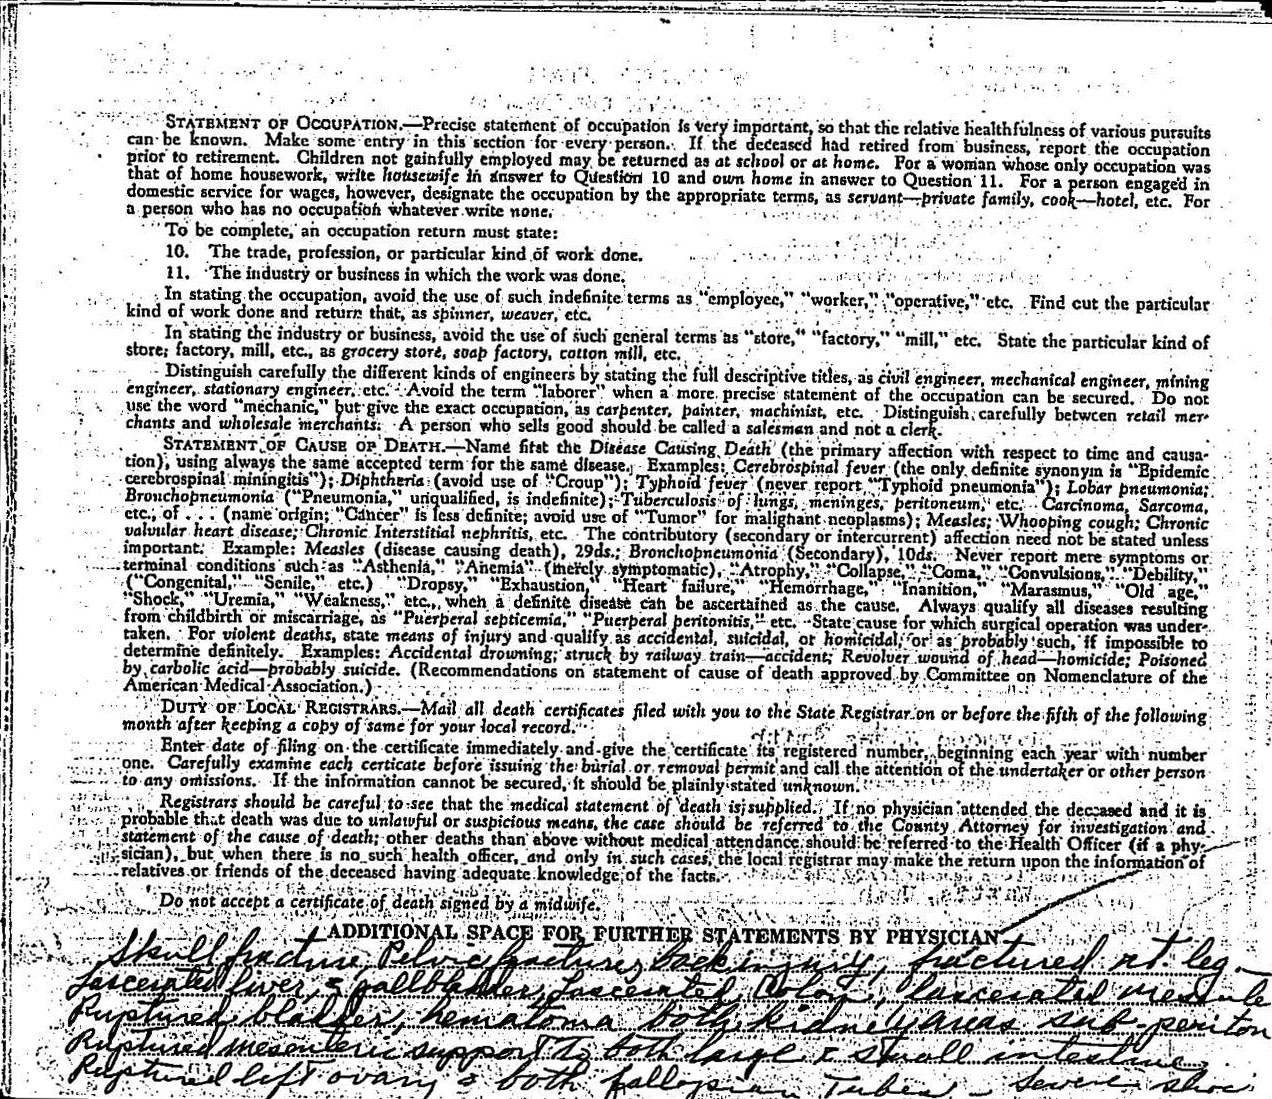 STATEMENT OF OCCUPATION.—Precise statement of occupation is very important, so that the relative healthfulness of various pursuits
can be known. Make some entry in this section for every person. If the deceased had retired from business, report the occupation
prior to retirement. Children not gainfully employed may be returned as at school or at home. For a woman whose only occupation was
that of home housework, write housewife in answer to Question 10 and own home in answer to Question 11. For a person engaged in
domestic service for wages, however, designate the occupation by the appropriate terms, as servant—private family, cook—hotel, etc. For
a person who has no occupation whatever write none.
To be complete, an occupation return must state:
10. The trade, profession, or particular kind of work done.
11. The industry or business in which the work was done.
In stating the occupation, avoid the use of such indefinite terms as "employee," "worker," "operative," etc. Find out the particular
kind of work done and return that, as spinner, weaver, etc.
In stating the industry or business, avoid the use of such general terms as "store," "factory," "mill," etc. State the particular kind of
store, factory, mill, etc., as grocery store, soap factory, cotton mill, etc.
Distinguish carefully the different kinds of engineers by stating the full descriptive titles, as civil engineer, mechanical engineer, mining
engineer, stationary engineer, etc. Avoid the term "laborer" when a more precise statement of the occupation can be secured. Do not
use the word "mechanic," but give the exact occupation, as carpenter, painter, machinist, etc. Distinguish carefully between retail mer-
chants and wholesale merchants. A person who sells good should be called a salesman and not a clerk.
STATEMENT OF CAUSE OF DEATH.—Name first the Disease Causing Death (the primary affection with respect to time and causa-
tion), using always the same accepted term for the same disease. Examples: Cerebrospinal fever (the only definite synonym is "Epidemic
cerebrospinal miningitis"); Diphtheria (avoid use of "Croup"); Typhoid fever (never report "Typhoid pneumonia"); Lobar pneumonia;
Bronchopneumonia ("Pneumonia," unqualified, is indefinite); Tuberculosis of lungs, meninges, peritoneum, etc. Carcinoma, Sarcoma,
etc., of . . . (name origin; "Cancer" is less definite; avoid use of "Tumor" for malignant neoplasms); Measles; Whooping cough; Chronic
valvular heart disease; Chronic Interstitial nephritis, etc. The contributory (secondary or intercurrent) affection need not be stated unless
important. Example: Measles (disease causing death), 29ds.; Bronchopneumonia (Secondary), 10ds. Never report mere symptoms or
terminal conditions such as "Asthenia," "Anemia" (merely symptomatic), "Atrophy," "Collapse," "Coma," "Convulsions," "Debility,"
("Congenital," "Senile," etc.) "Dropsy," "Exhaustion," "Heart failure," "Hemorrhage," "Inanition," "Marasmus," "Old age,"
"Shock," "Uremia," "Weakness," etc., when a definite disease can be ascertained as the cause. Always qualify all diseases resulting
from childbirth or miscarriage, as "Puerperal septicemia," "Puerperal peritonitis," etc. State cause for which surgical operation was under-
taken. For violent deaths, state means of injury and qualify as accidental, suicidal, or homicidal, or as probably such, if impossible to
determine definitely. Examples: Accidental drowning; struck by railway train—accident; Revolver wound of head—homicide; Poisoned
by carbolic acid—probably suicide. (Recommendations on statement of cause of death approved by Committee on Nomenclature of the
American Medical Association.)
DUTY OF LOCAL REGISTRARS.—Mail all death certificates filed with you to the State Registrar on or before the fifth of the following
month after keeping a copy of same for your local record.
Enter date of filing on the certificate immediately and give the certificate its registered number, beginning each year with number
one. Carefully examine each certicate before issuing the burial or removal permit and call the attention of the undertaker or other person
to any omissions. If the information cannot be secured, it should be plainly stated unknown.
Registrars should be careful to see that the medical statement of death is supplied. If no physician attended the deceased and it is
probable that death was due to unlawful or suspicious means, the case should be referred to the County Attorney for investigation and
statement of the cause of death; other deaths than above without medical attendance should be referred to the Health Officer (if a phy-
sician), but when there is no such health officer, and only in such cases, the local registrar may make the return upon the information of
relatives or friends of the deceased having adequate knowledge of the facts.
Do not accept a certificate of death signed by a midwife.
ADDITIONAL SPACE FOR FURTHER STATEMENTS BY PHYSICIAN
Skull fracture, Pelvic fractures, back injury, fractured rt. leg.
Lascerated liver, & gallbladder, Lascerated Colon, lascerated mesente
Ruptured bladder, hematoma both kidney areas sub-periton
Ruptured mesenteric support to both large & small intestine
Ruptured left ovary & both fallopian Tubes - severe shoc